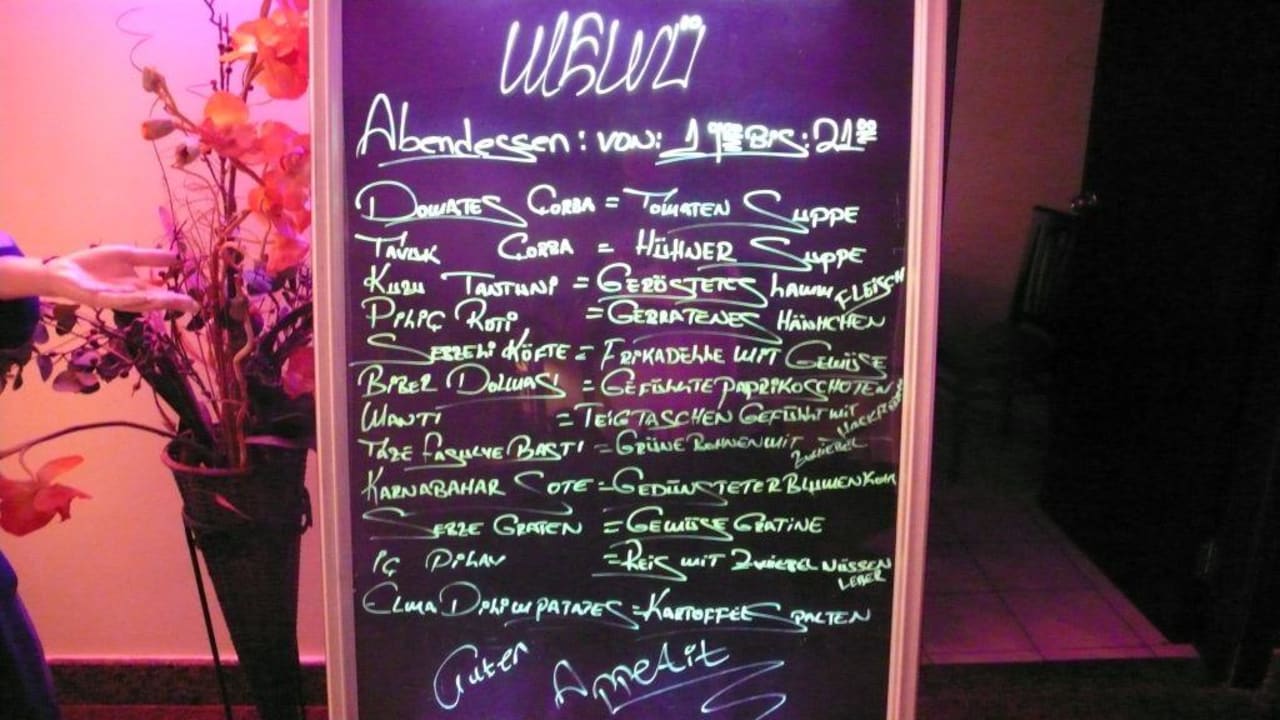 MENÜ
Abendessen: von: 19⁰⁰ Bis: 21⁰⁰
DOMATES CORBA = TOMATEN SUPPE
TAVUK CORBA = HÜHNER SUPPE
KUZU TANTUNI = GERÖSTETES LAMM FLEISCH
PILIÇ ROTI = GEBRATENES HÄHNCHEN
SEBZELI KÖFTE = FRIKADELLE MIT GEMÜSE
BIBER DOLMASI = GEFÜHLLTE PAPRIKOSCHOTEN
MANTI = TEIGTASCHEN GEFÜHLLT MIT HACKFLEISCH
TAZE FASULYE BASTI = GRÜNE BOHNEN MIT ZWIEBEL
KARNABAHAR SOTE = GEDÜNSTETER BLUMENKOHL
SEBZE GRATEN = GEMÜSE GRATINE
IÇ PILAV = REIS MIT ZWIEBEL NÜSSEN LEBER
ELMA DILIM PATATES = KARTOFFEL SPALTEN
Guten Appetit